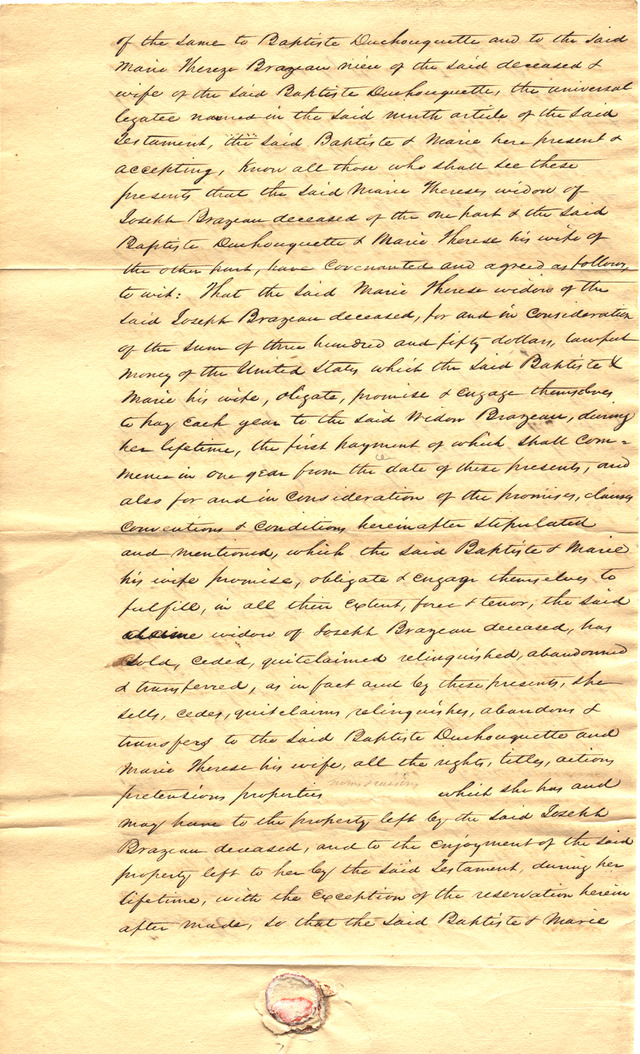 of the same to Baptiste Duchouquette and to the said
Marie Thereze Brazeau niece of the said deceased &
wife of the said Baptiste Duchouquette, the universal
legatee named in the said ninth article of the said
Testament, the said Baptiste & Marie here present &
accepting, Know all those who shall see these
presents that the said Marie Therese widow of
Joseph Brazeau deceased of the one part & the said
Baptiste Duchouquette & Marie Therese his wife of
the other part, have covenanted and agreed as follows,
to wit: That the said Marie Therese widow of the
said Joseph Brazeau deceased, for and in consideration
of the sum of three hundred and fifty dollars, lawful
money of the United States which the said Baptiste &
Marie his wife, obligate, promise & engage themselves
to pay each year to the said Widow Brazeau, during
her lifetime, the first payment of which shall com=
mence in one year from the date of these presents, and
also for and in consideration of the promises, clauses
conventions & conditions hereinafter stipulated
and mentioned, which the said Baptiste & Marie
his wife promise, obligate & engage themselves to
fulfill, in all their extent, force & tenor, the said
widow of Joseph Brazeau deceased, has
sold, ceded, quitclaimed relinquished, abandoned
& transferred, as in fact and by these presents, she
sells, cedes, quitclaims relinquishes, abandons &
transfers to the said Baptiste Duchouquette and
Marie Therese his wife, all the rights, titles, actions
pretensions properties which she has and
may have to the property left by the said Joseph
Brazeau deceased, and to the enjoyment of the said
property left to her by the said Testament, during her
lifetime, with the exception of the reservation herein
after made, so that the said Baptiste & Marie